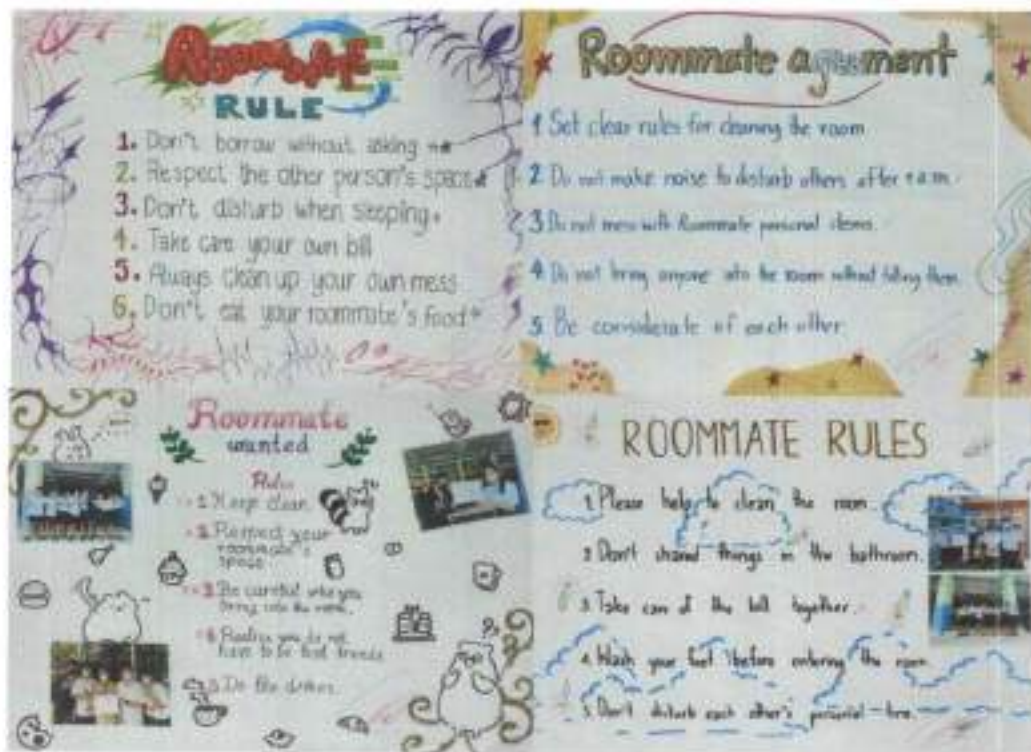 ROOMMATE
RULE
1. Don't borrow without asking
2. Respect the other person's space
3. Don't disturb when sleeping
4. Take care your own bill
5. Always clean up your own mess
6. Don't eat your roommate's food
Roommate agument
1 Set clear rules for cleaning the room
2 Do not make noise to disturb others after a.m.
3 Do not mess with Roommate personal items.
4 Do not bring anyone into the room without telling them.
5. Be considerate of each other.
Roommate
wanted
Rules
1 Keep clean
2 Respect your
roommate's
space
3 Be careful who you
bring into the room.
4 Realize you do not
have to be best friends
5 Do the dishes
ROOMMATE RULES
1. Please help to clean the room.
2 Don't shared things in the bathroom.
3 Take care of the bill together.
4. Wash your feet before entering the room
5. Don't disturb each other's personal-time.